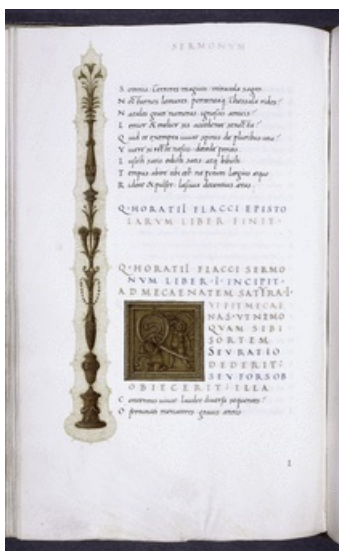 SERMONVM
Somnia: terrores magicos: miracula: sagas:
Nocturnos lemures: portentaque thessala rides?
Natales grate numeras? ignoscis amicis?
Lenior & melior fis accedente senecta?
Quid te exempta iuuat spinis de pluribus una?
Viuere si recte nescis: decede peritis.
Lusisti satis: edisti satis: atque bibisti:
Tempus abire tibi est: ne potum largius aequo
Rideat & pulset lasciua decentius aetas.
Q·HORATII FLACCI EPISTO
LARVM LIBER FINIT·
Q·HORATII FLACCI SERMO
NVM LIBER·I·INCIPIT·
AD MECAENATEM SATYRA·I·
VI FIT MECAE
NAS·VT NEMO
QVAM SIBI
SORTEM
SEV RATIO
DEDERIT:
SEV FORS OB
OBIECERIT: ILLA
Contentus uiuat: laudet diuersa sequentes?
O fortunati mercatores grauis annis
1